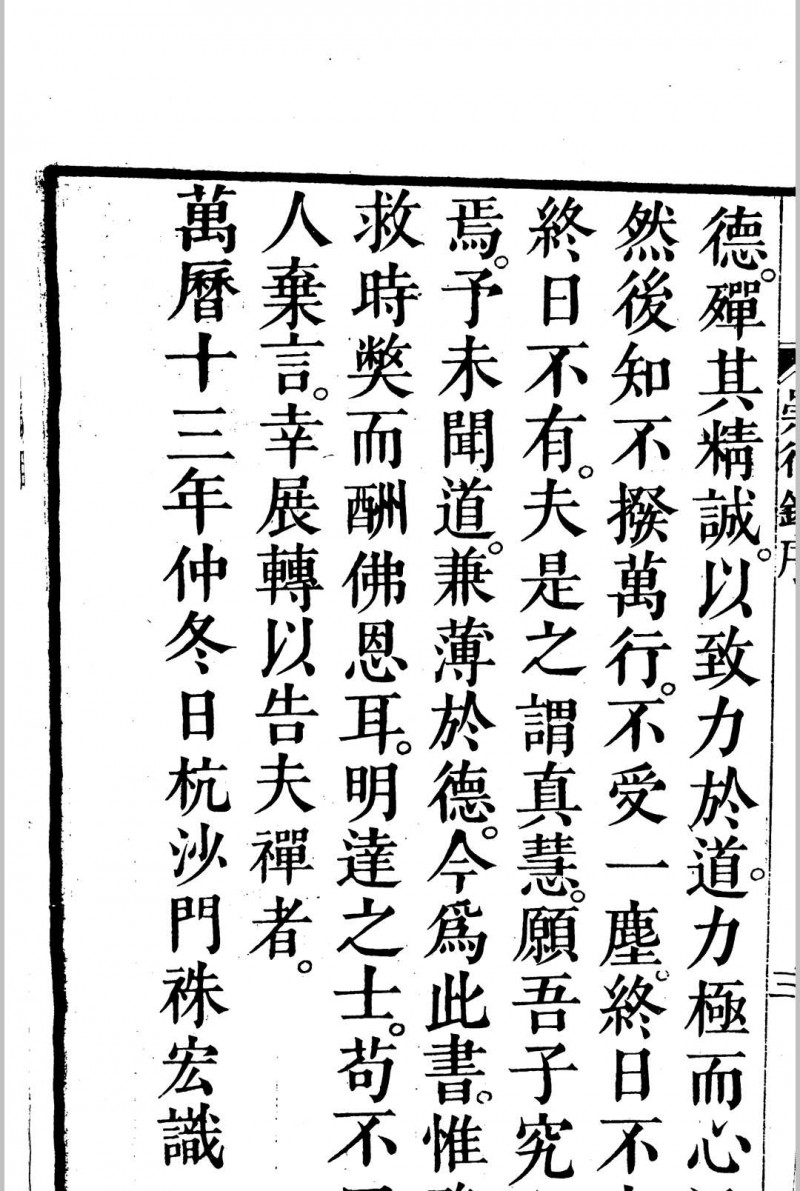 崇行錄序
三
德。殫其精誠。以致力於道。力極而心
然後知不撥萬行。不受一塵。終日不
終日不有。夫是之謂真慧。願吾子究
焉。予未聞道。兼薄於德。今爲此書。惟
救時獘而酬佛恩耳。明達之士。苟不
人棄言。幸展轉以告夫禪者。
萬曆十三年仲冬日杭沙門袾宏識